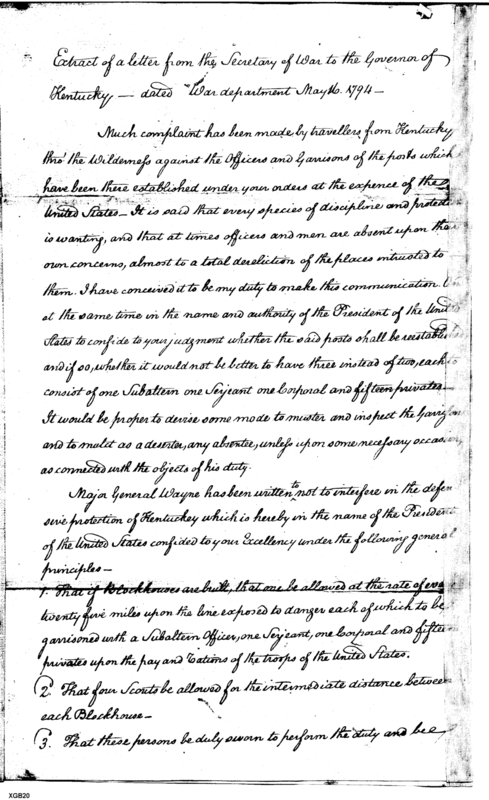 Extract of a letter from the Secretary of War to the Governor of
Kentucky — dated War department May 16. 1794 —
Much complaint has been made by travellers from Kentucky
thro' the Wilderness against the Officers and Garrisons of the posts which
have been there established under your orders at the expence of the
United States — It is said that every species of discipline and protect
is wanting, and that at times officers and men are absent upon their
own concerns, almost to a total dereliction of the places intrusted to
them. I have conceived it to be my duty to make this communication
at the same time in the name and authority of the President of the Unit
States to confide to your judgment whether the said posts shall be reestablis
and if so, whether it would not be better to have three instead of two, each to
consist of one Subaltern one Serjeant one Corporal and fifteen privates —
It would be proper to devise some mode to muster and inspect the Garrisons
and to mulct as a deserter, any absentee, unless upon some necessary occasion,
as connected with the objects of his duty.
Major General Wayne has been written to not to interfere in the defen
sive protection of Kentuckey which is hereby in the name of the Preside
of the United States confided to your Excellency under the following general
principles —
1. That if Blockhouses are built, that one be allowed at the rate of every
twenty five miles upon the line exposed to danger each of which to be
garrisoned with a Subaltern Officer, one Serjeant, one Corporal and fifteen
privates upon the pay and rations of the troops of the United States.
2. That four Scouts be allowed for the intermediate distance between
each Blockhouse —
3. That these persons be duly sworn to perform the duty and be
XGB20